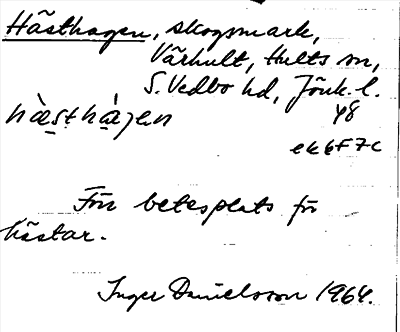 Hästhagen, skogsmark,
Värhult, Hults sn,
S. Vedbo hd, Jönk. l.
hàst̤hàgen 48
ek 6F7c
Förr betesplats för
hästar.
Inger Danielsson 1964.